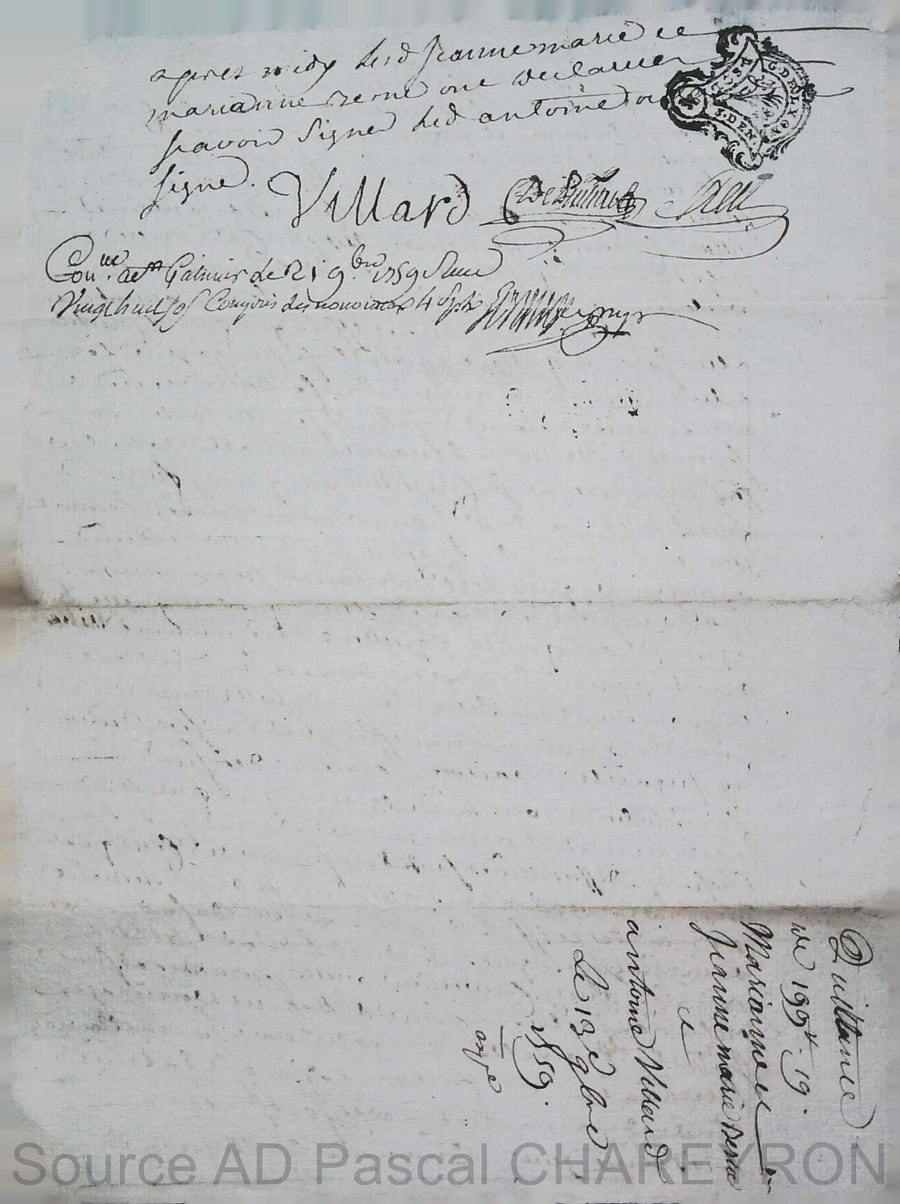 apres midy lesd Jeanne marie et
marianne verne ont declarer
scavoir signe led antoine
signé.
Villard
Galmier le 21 9bre 1759 Recu
Vingt huit sols Compris les honoraires 4
G.D. LYON
5. DEN
Quittance
de 199lt 19.
Marianne et
Jeanne marie verne
a
antoine Villard
Le 13e 9bre
1759.
Source AD Pascal CHAREYRON